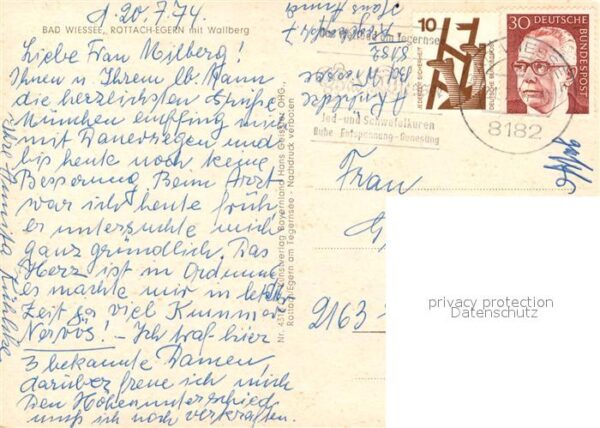 d. 20.7.74
BAD WIESSEE, ROTTACH-EGERN mit Wallberg
Liebe Frau Milberg!
Ihnen u Ihrem lb. Mann
die herzlichsten Grüße
München empfing mich
mit Dauerregen und
bis heute noch keine
Besserung. Beim Arzt
war ich heute früh
er untersuchte mich
ganz gründlich. Das
Herz ist in Ordnung
es machte mir in letzter
Zeit so viel Kummer
Nervös! - Ich traf hier
3 bekannte Damen
darüber freue ich mich
Den Höhenunterschied
muß ich noch verkraften.
Ihre
Bayernland Hans Geissler OHG.,
Rottach/Egern am Tegernsee - Nachdruck verboten
Tegernsee
8182 Bad Wiessee
Jod- und Schwefelkuren
Ruhe Entspannung Genesung
8182
10
DEUTSCHE BUNDESPOST
30
DEUTSCHE
BUNDESPOST
Frau
2163
privacy protection
Datenschutz